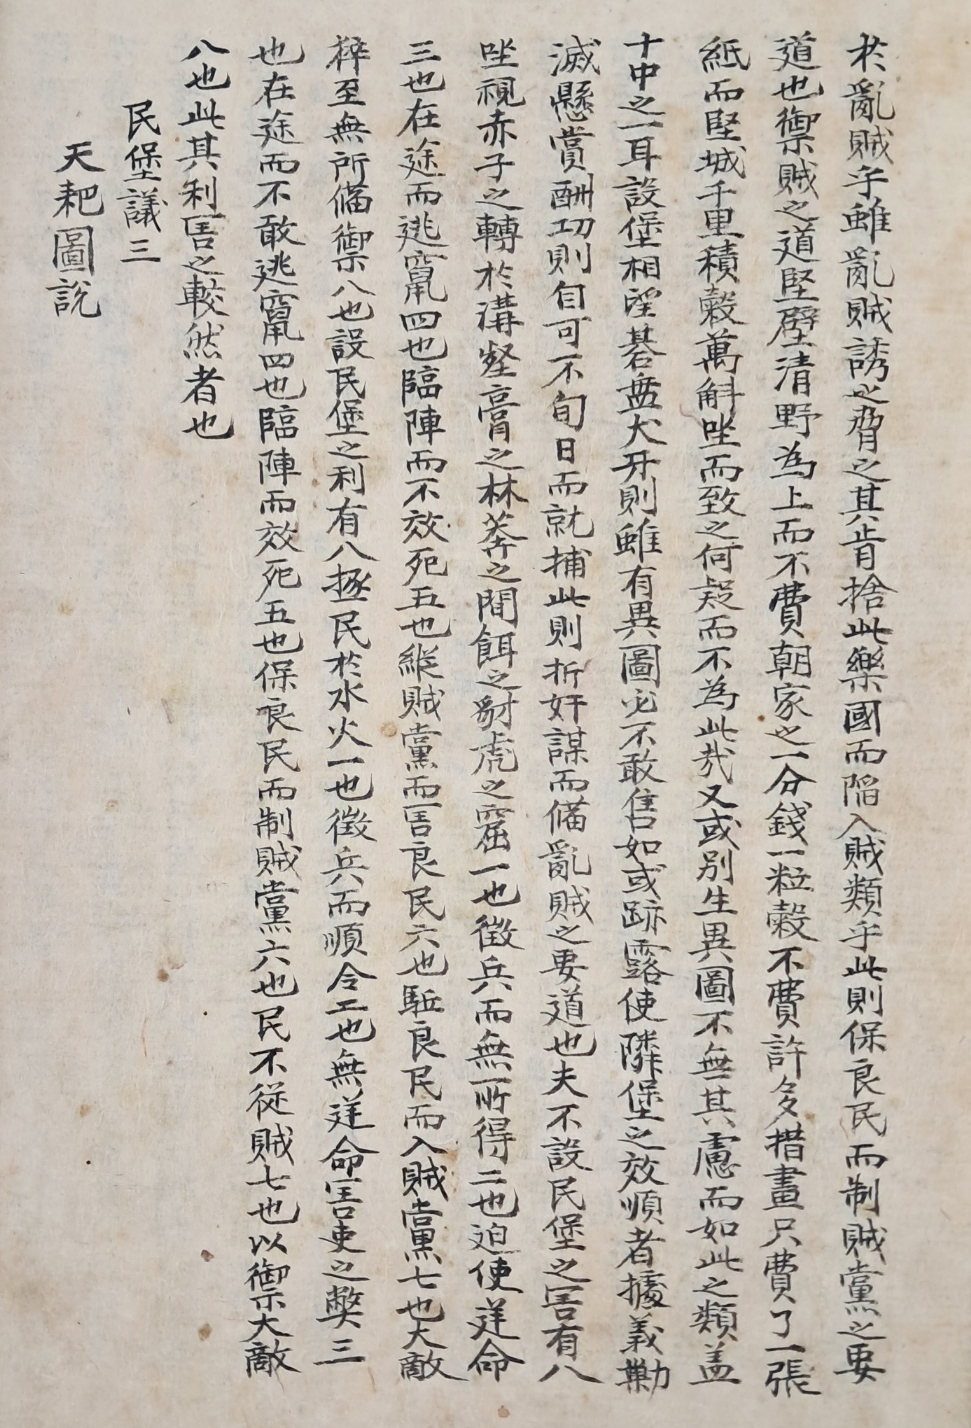 於亂賊乎雖亂賊誘之脅之其肯捨此樂國而陷入賊類乎此則保良民而制賊黨之要
道也禦賊之道堅壁清野為上而不費朝家之一分錢一粒穀不費許多措畫只費了一張
紙而堅城千里積穀萬斛坐而致之何疑而不為此哉又或別生異圖不無其慮而如此之類盖
十中之一耳設堡相望碁盤犬牙則雖有異圖必不敢售如或跡露使隣堡之效順者據義勦
滅懸賞酬功則自可不旬日而就捕此則折奸謀而備亂賊之要道也夫不設民堡之害有八
坐視赤子之轉於溝壑膏之林莽之間餌之豺虎之窟一也徵兵而無所得二也迫使逆命
三也在途而逃竄四也臨陣而不效死五也縱賊黨而害良民六也駈良民而入賊黨七也大敵
猝至無所備禦八也設民堡之利有八拯民於水火一也徵兵而順令二也無逆命害吏之獘三
也在途而不敢逃竄四也臨陣而效死五也保良民而制賊黨六也民不從賊七也以禦大敵
八也此其利害之較然者也
民堡議三
天耙圖說